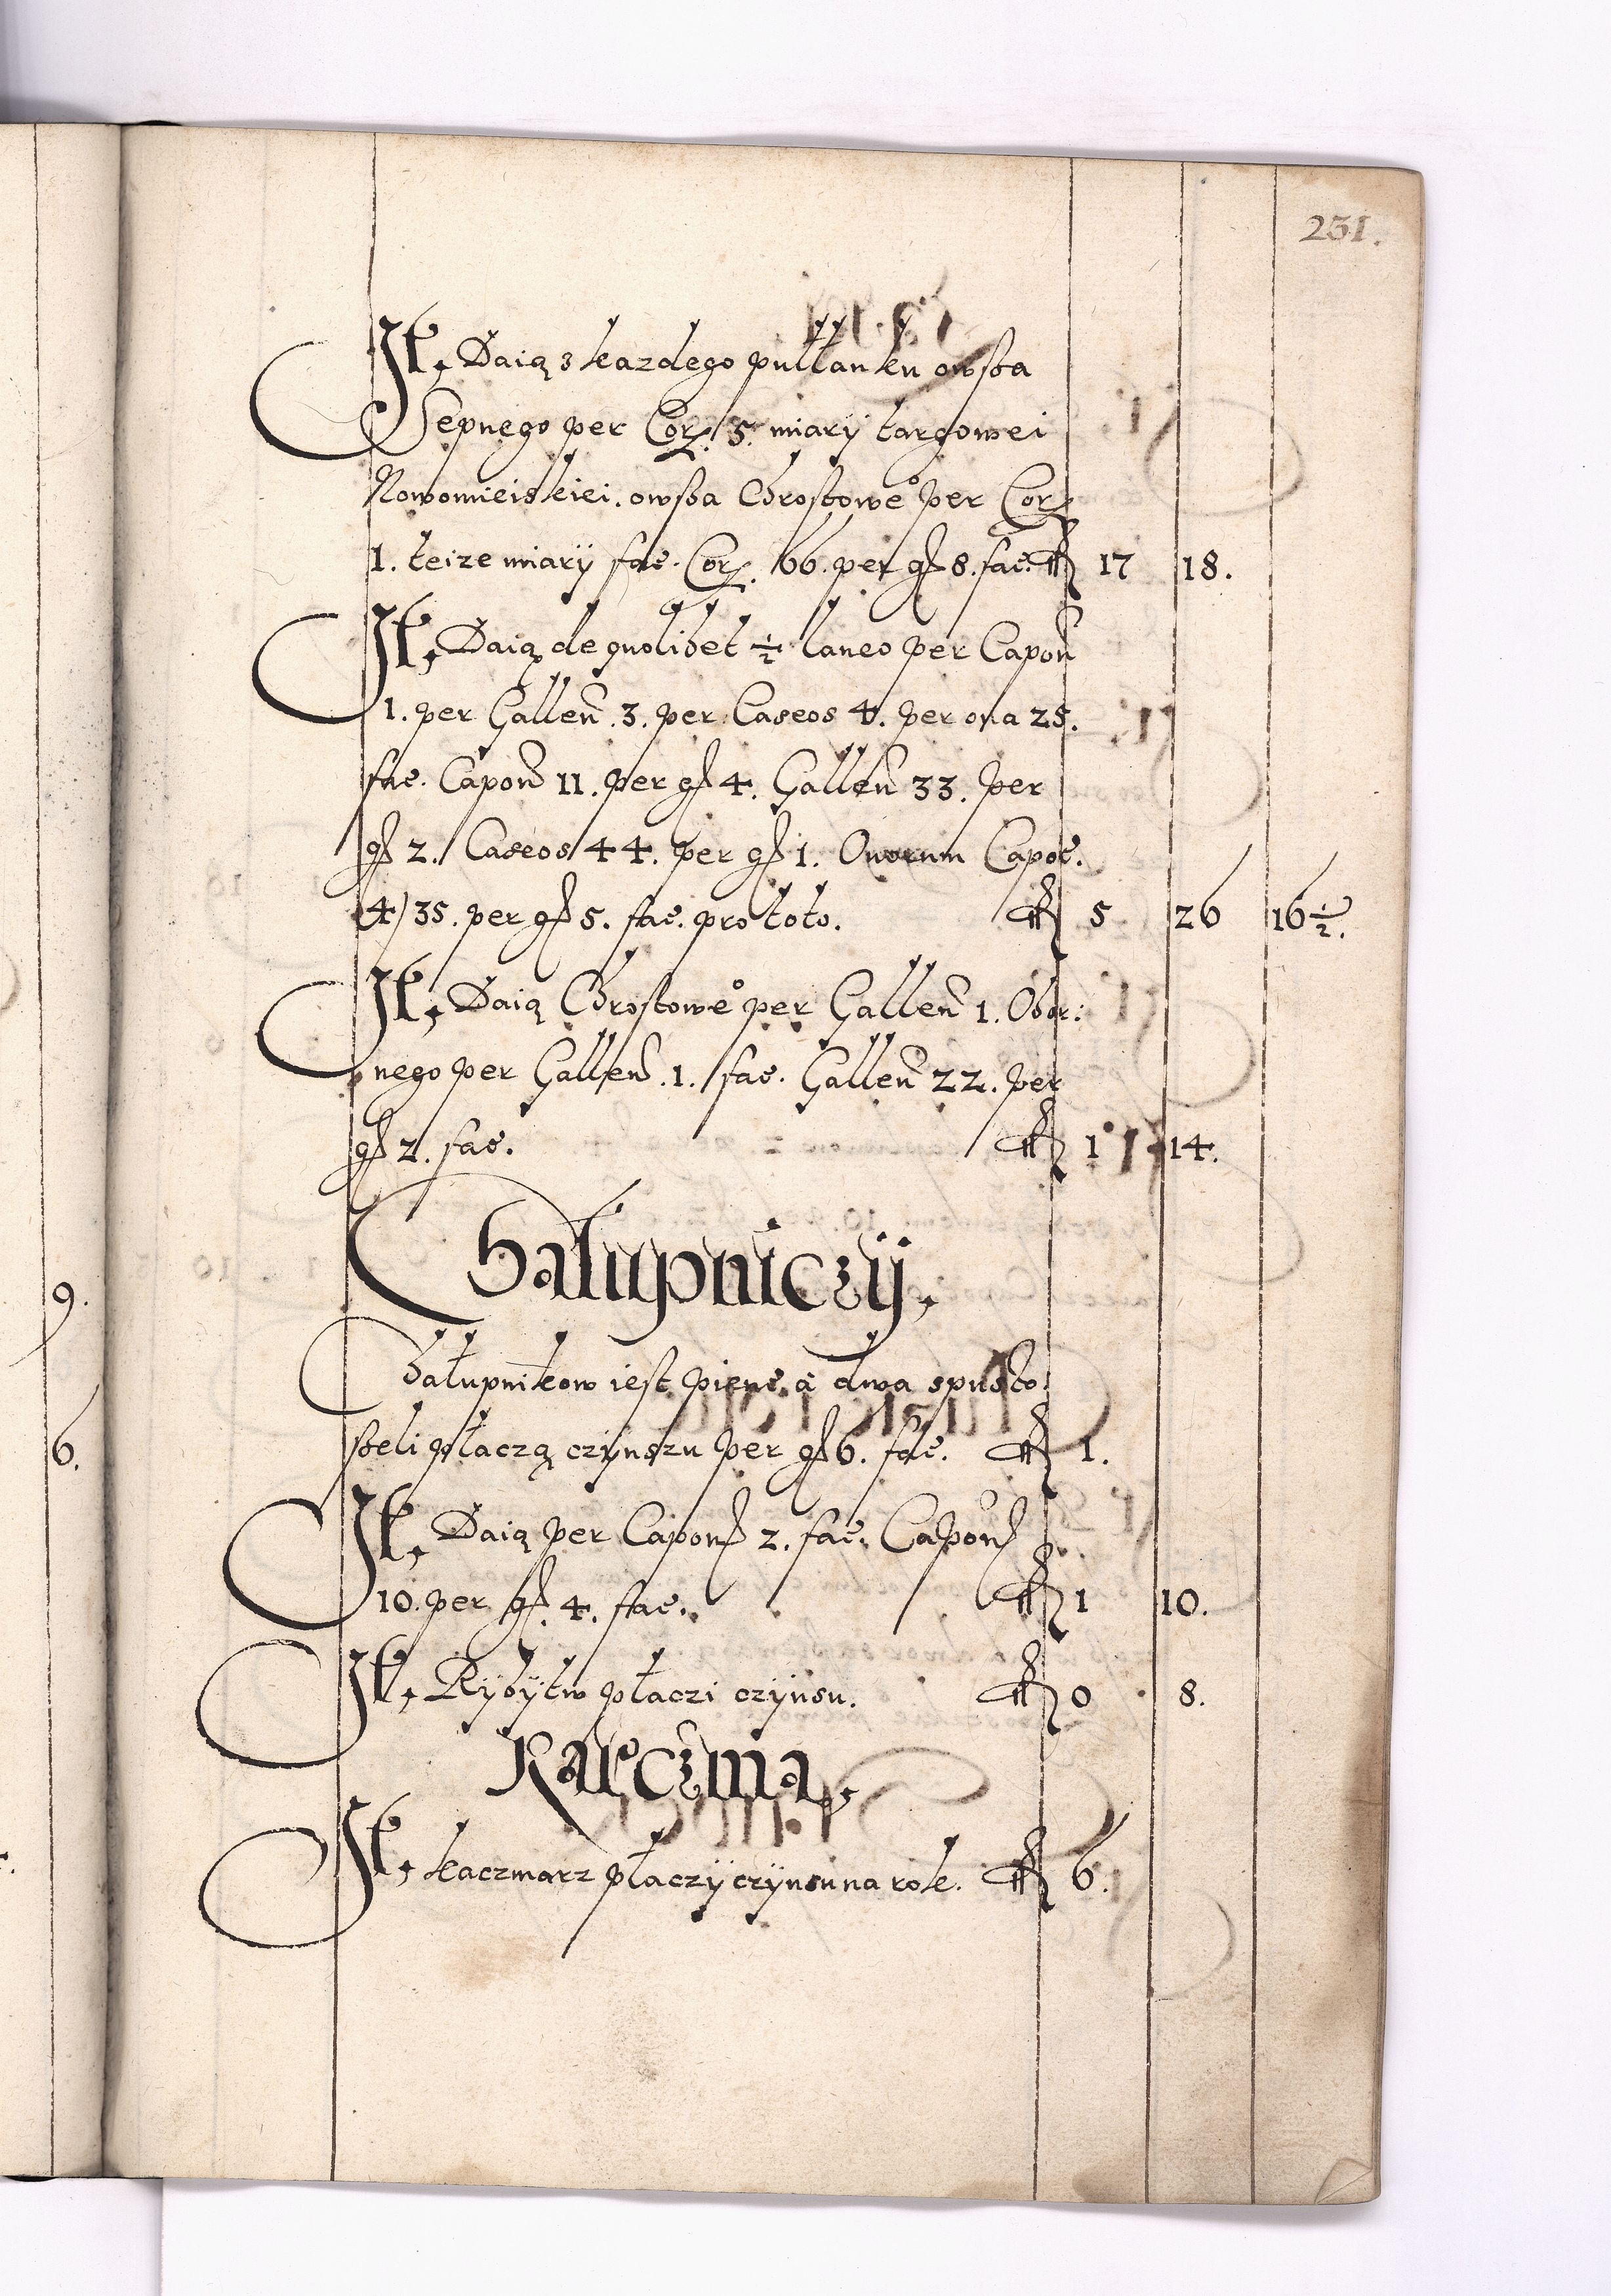 231.
It, Daią z kazdego pułłanku owsa
Sepnego per Cor. 5. miary targowei
Nowomieiskiei. owsa Chrostoweº per Cor.
1. teize miarÿ fac. Cor. 66. per gr 8. fac. fl 17 18.
It, Daią de quolibet ½ laneo per Capon
1. per Gallen. 3. per Caseos 4. per ova 25.
fac. Capon 11. per gr 4. Gallen 33. per
gr 2. Caseos 44. per gr 1. Ovorum Capoe.
4/35. per gr 5. fac. pro toto. fl 5 26 16½.
It, Daią Chrostoweº per Gallen 1. Obor:
nego per Gallen. 1. fac. Gallen 22. per
gr 2. fac. fl 1 14.
Chałupniczÿ,
Chałupnikow iest piene a dwa spusto
szeli płaczą czÿnszu per gr 6. fac. fl 1.
It, Daią per Capon 2. fac. Capon
10. per gr. 4. fac. fl 1 10.
It, Rÿbÿtw płaczi czÿnsu. fl 0 8.
Karczma,
It, kaczmarz płaczÿ czÿnsu na rok. fl 6.
9.
6.